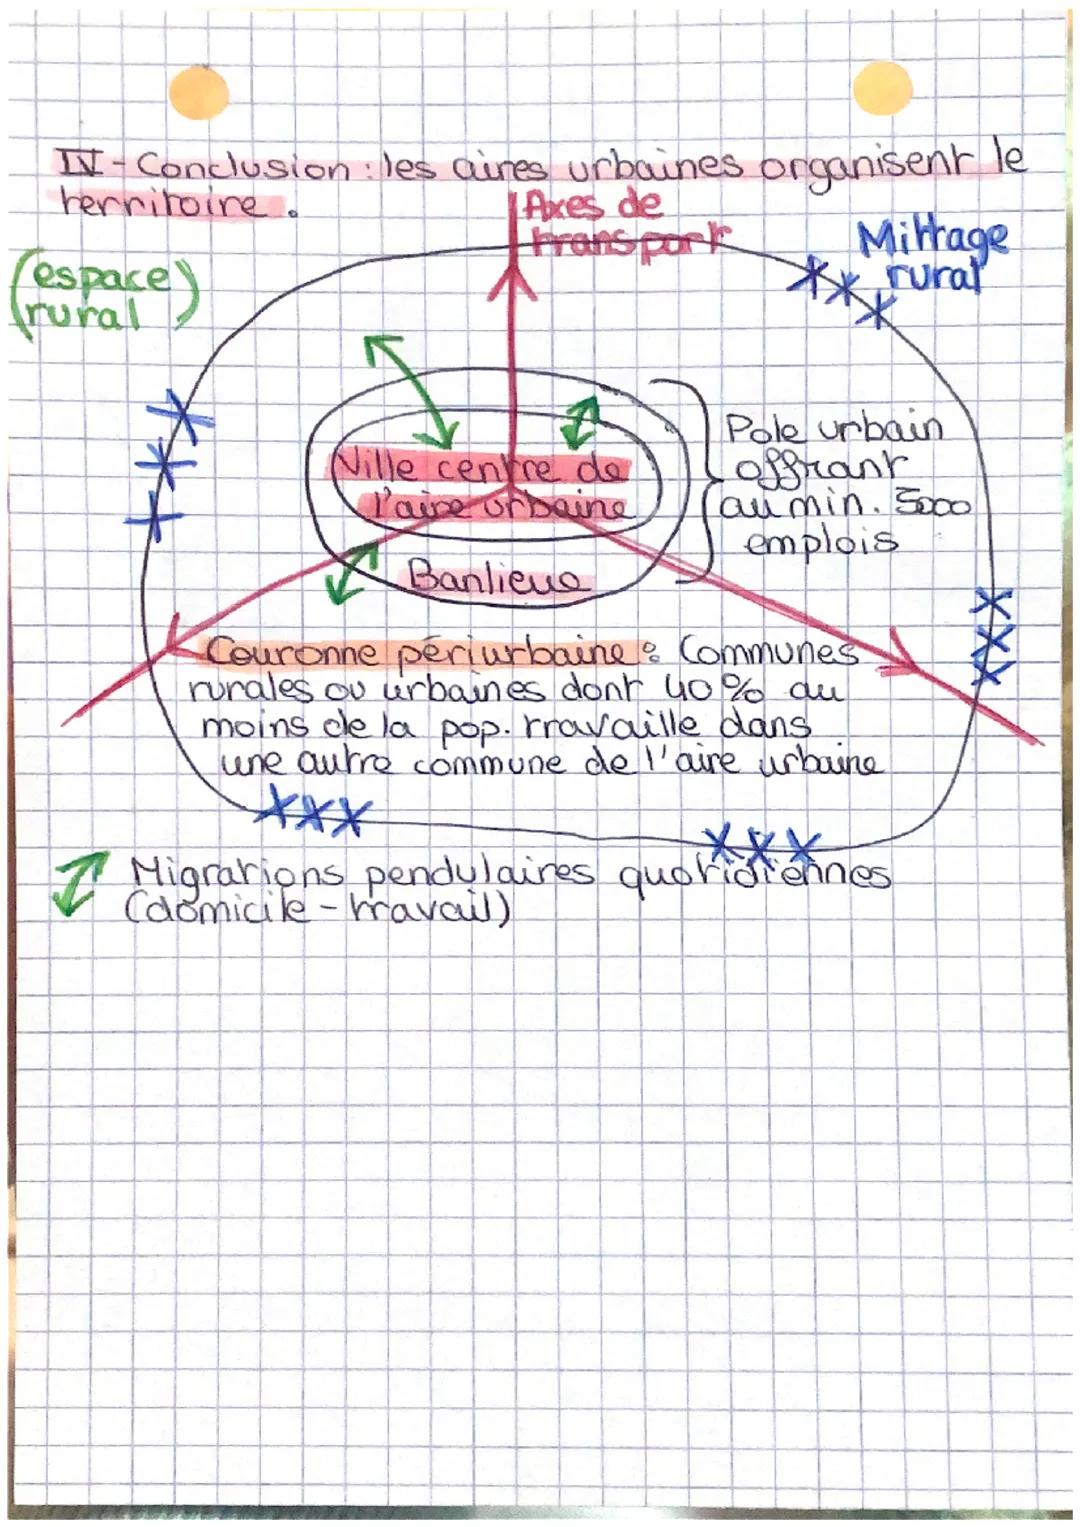 IV - Conclusion : les aires urbaines organisent le
territoire.
Axes de
transport
Mittage
rural
(espace
rural)
Pole urbain
offrant
au min. 5000
emplois
Ville centre de
l'aire urbaine
Banlieue
Couronne périurbaine : Communes
rurales ou urbaines dont 40% au
moins de la pop. travaille dans
une autre commune de l'aire urbaine
Migrations pendulaires quotidiennes
(domicile - travail)